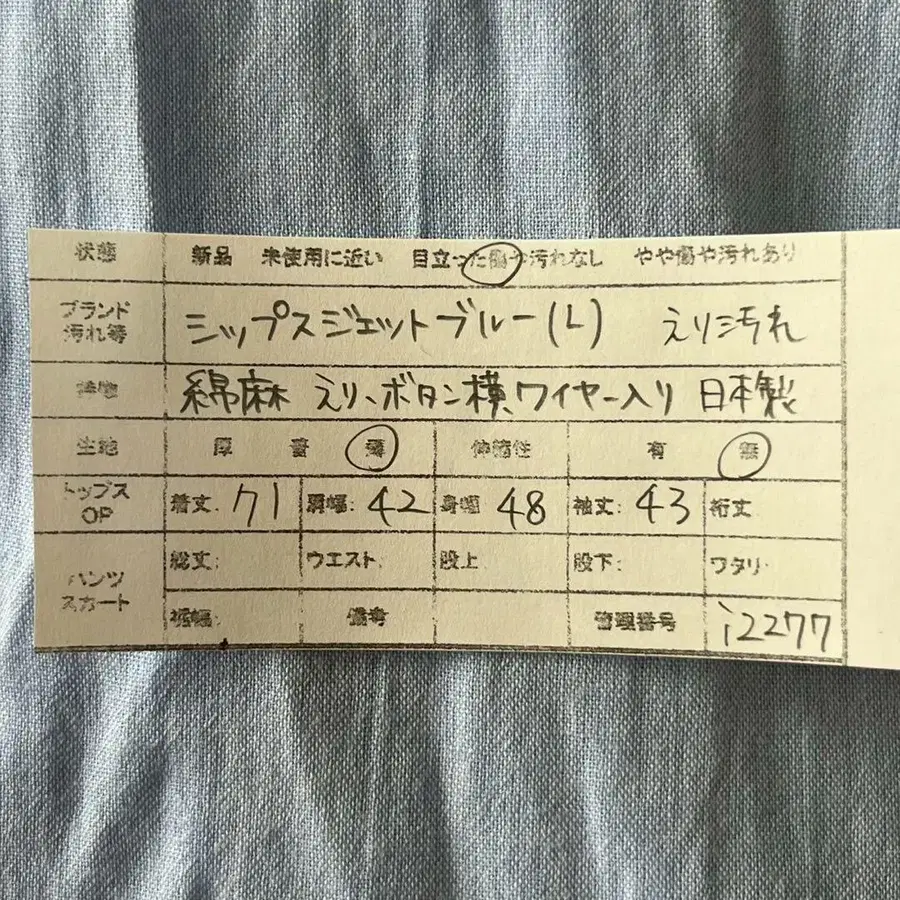 状態 新品 未使用に近い 目立った傷や汚れなし やや傷や汚れあり
ブランド
汚れ等 シップスジェットブルー(L) えり汚れ
綿麻 えり、ボタン横、ワイヤー入り 日本製
生地 厚 普 薄 伸縮性 有 無
トップス
OP 着丈: 71 肩幅: 42 身幅 48 袖丈: 43 裄丈
パンツ
スカート 総丈: ウエスト 股上 股下: ワタリ
裾幅 備考 管理番号 i2277